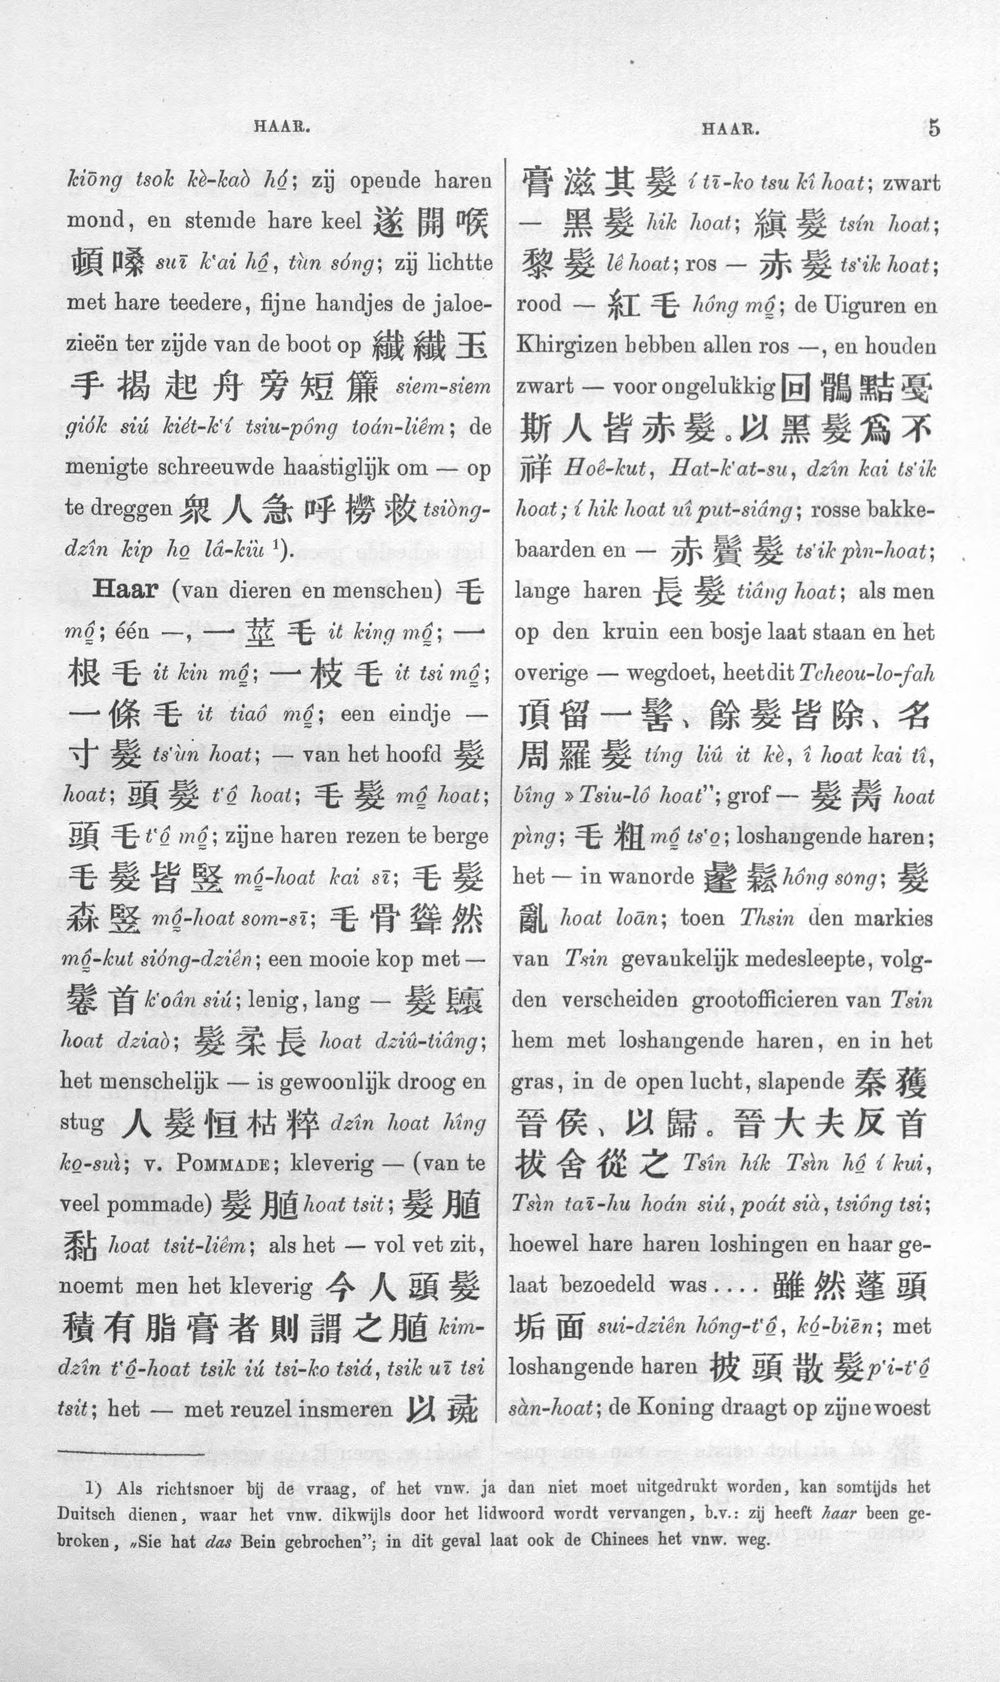 HAAR.
kiōng tsok kè-kaò hố; zij opende haren
mond, en stemde hare keel 遂開喉
頓嗓 suī k'ai hô, tùn sóng; zij lichtte
met hare teedere, fijne handjes de jaloe-
zieën ter zijde van de boot op 纖纖玉
手揭起舟旁短簾 siem-siem
giók siú kiét-k'í tsiu-pông toán-liêm; de
menigte schreeuwde haastiglijk om — op
te dreggen 衆人急呼撈救 tsiòng-
dzîn kip ho lâ-kiù ¹).
Haar (van dieren en menschen) 毛
mô; één —, 一莖毛 it king mô; 一
根毛 it kin mô; 一枝毛 it tsi mô;
一條毛 it tiaô mô; een eindje —
寸髮 ts'ùn hoat; — van het hoofd 髮
hoat; 頭髮 t'ô hoat; 毛髮 mô hoat;
頭毛 t'ô mô; zijne haren rezen te berge
毛髮皆竪 mô-hoat kai sī; 毛髮
森竪 mô-hoat som-sī; 毛骨聳然
mô-kut sióng-dziên; een mooie kop met —
鬈首 k'oân siú; lenig, lang — 髮
hoat dziaò; 髮柔長 hoat dziû-tiâng;
het menschelijk — is gewoonlijk droog en
stug 人髮恒枯粹 dzîn hoat hîng
ko-suì; v. POMMADE; kleverig — (van te
veel pommade) 髮膱 hoat tsit; 髮膱
黏 hoat tsit-liêm; als het — vol vet zit,
noemt men het kleverig 今人頭髮
積有脂膏者則謂之膱 kim-
dzîn t'ô-hoat tsik iú tsi-ko tsiá, tsik uī tsi
tsit; het — met reuzel insmeren 以
HAAR. 5
膏滋其髮 í tī-ko tsu kî hoat; zwart
— 黑髮 hik hoat; 縝髮 tsín hoat;
黎髮 lê hoat; ros — 赤髮 ts'ik hoat;
rood — 紅毛 hông mô; de Uiguren en
Khirgizen hebben allen ros —, en houden
zwart — voor ongelukkig 回鶻黠戛
斯人皆赤髮。以黑髮爲不
祥 Hoê-kut, Hat-k'at-su, dzîn kai ts'ik
hoat; í hik hoat uî put-siâng; rosse bakke-
baarden en — 赤鬢髮 ts'ik pìn-hoat;
lange haren 長髮 tiâng hoat; als men
op den kruin een bosje laat staan en het
overige — wegdoet, heet dit Tcheou-lo-fah
頂留一髻、餘髮皆除、名
周羅髮 tíng liû it kè, î hoat kai tî,
bîng » Tsiu-lô hoat"; grof — 髮 hoat
pìng; 毛粗 mô ts'o; loshangende haren;
het — in wanorde 鬆 hông song; 髮
亂 hoat loān; toen Thsin den markies
van Tsin gevankelijk medesleepte, volg-
den verscheiden grootofficieren van Tsin
hem met loshangende haren, en in het
gras, in de open lucht, slapende 秦獲
晉侯、以歸。晉大夫反首
拔舍從之 Tsîn hík Tsìn hô í kui,
Tsìn taī-hu hoán siú, poát sià, tsiông tsi;
hoewel hare haren loshingen en haar ge-
laat bezoedeld was.... 雖然蓬頭
垢面 sui-dziên hông-t'ô, kó-biēn; met
loshangende haren 披頭散髮 p'i-t'ô
sàn-hoat; de Koning draagt op zijne woest
1) Als richtsnoer bij de vraag, of het vnw. ja dan niet moet uitgedrukt worden, kan somtijds het
Duitsch dienen, waar het vnw. dikwijls door het lidwoord wordt vervangen, b.v.: zij heeft haar been ge-
broken, „Sie hat das Bein gebrochen"; in dit geval laat ook de Chinees het vnw. weg.